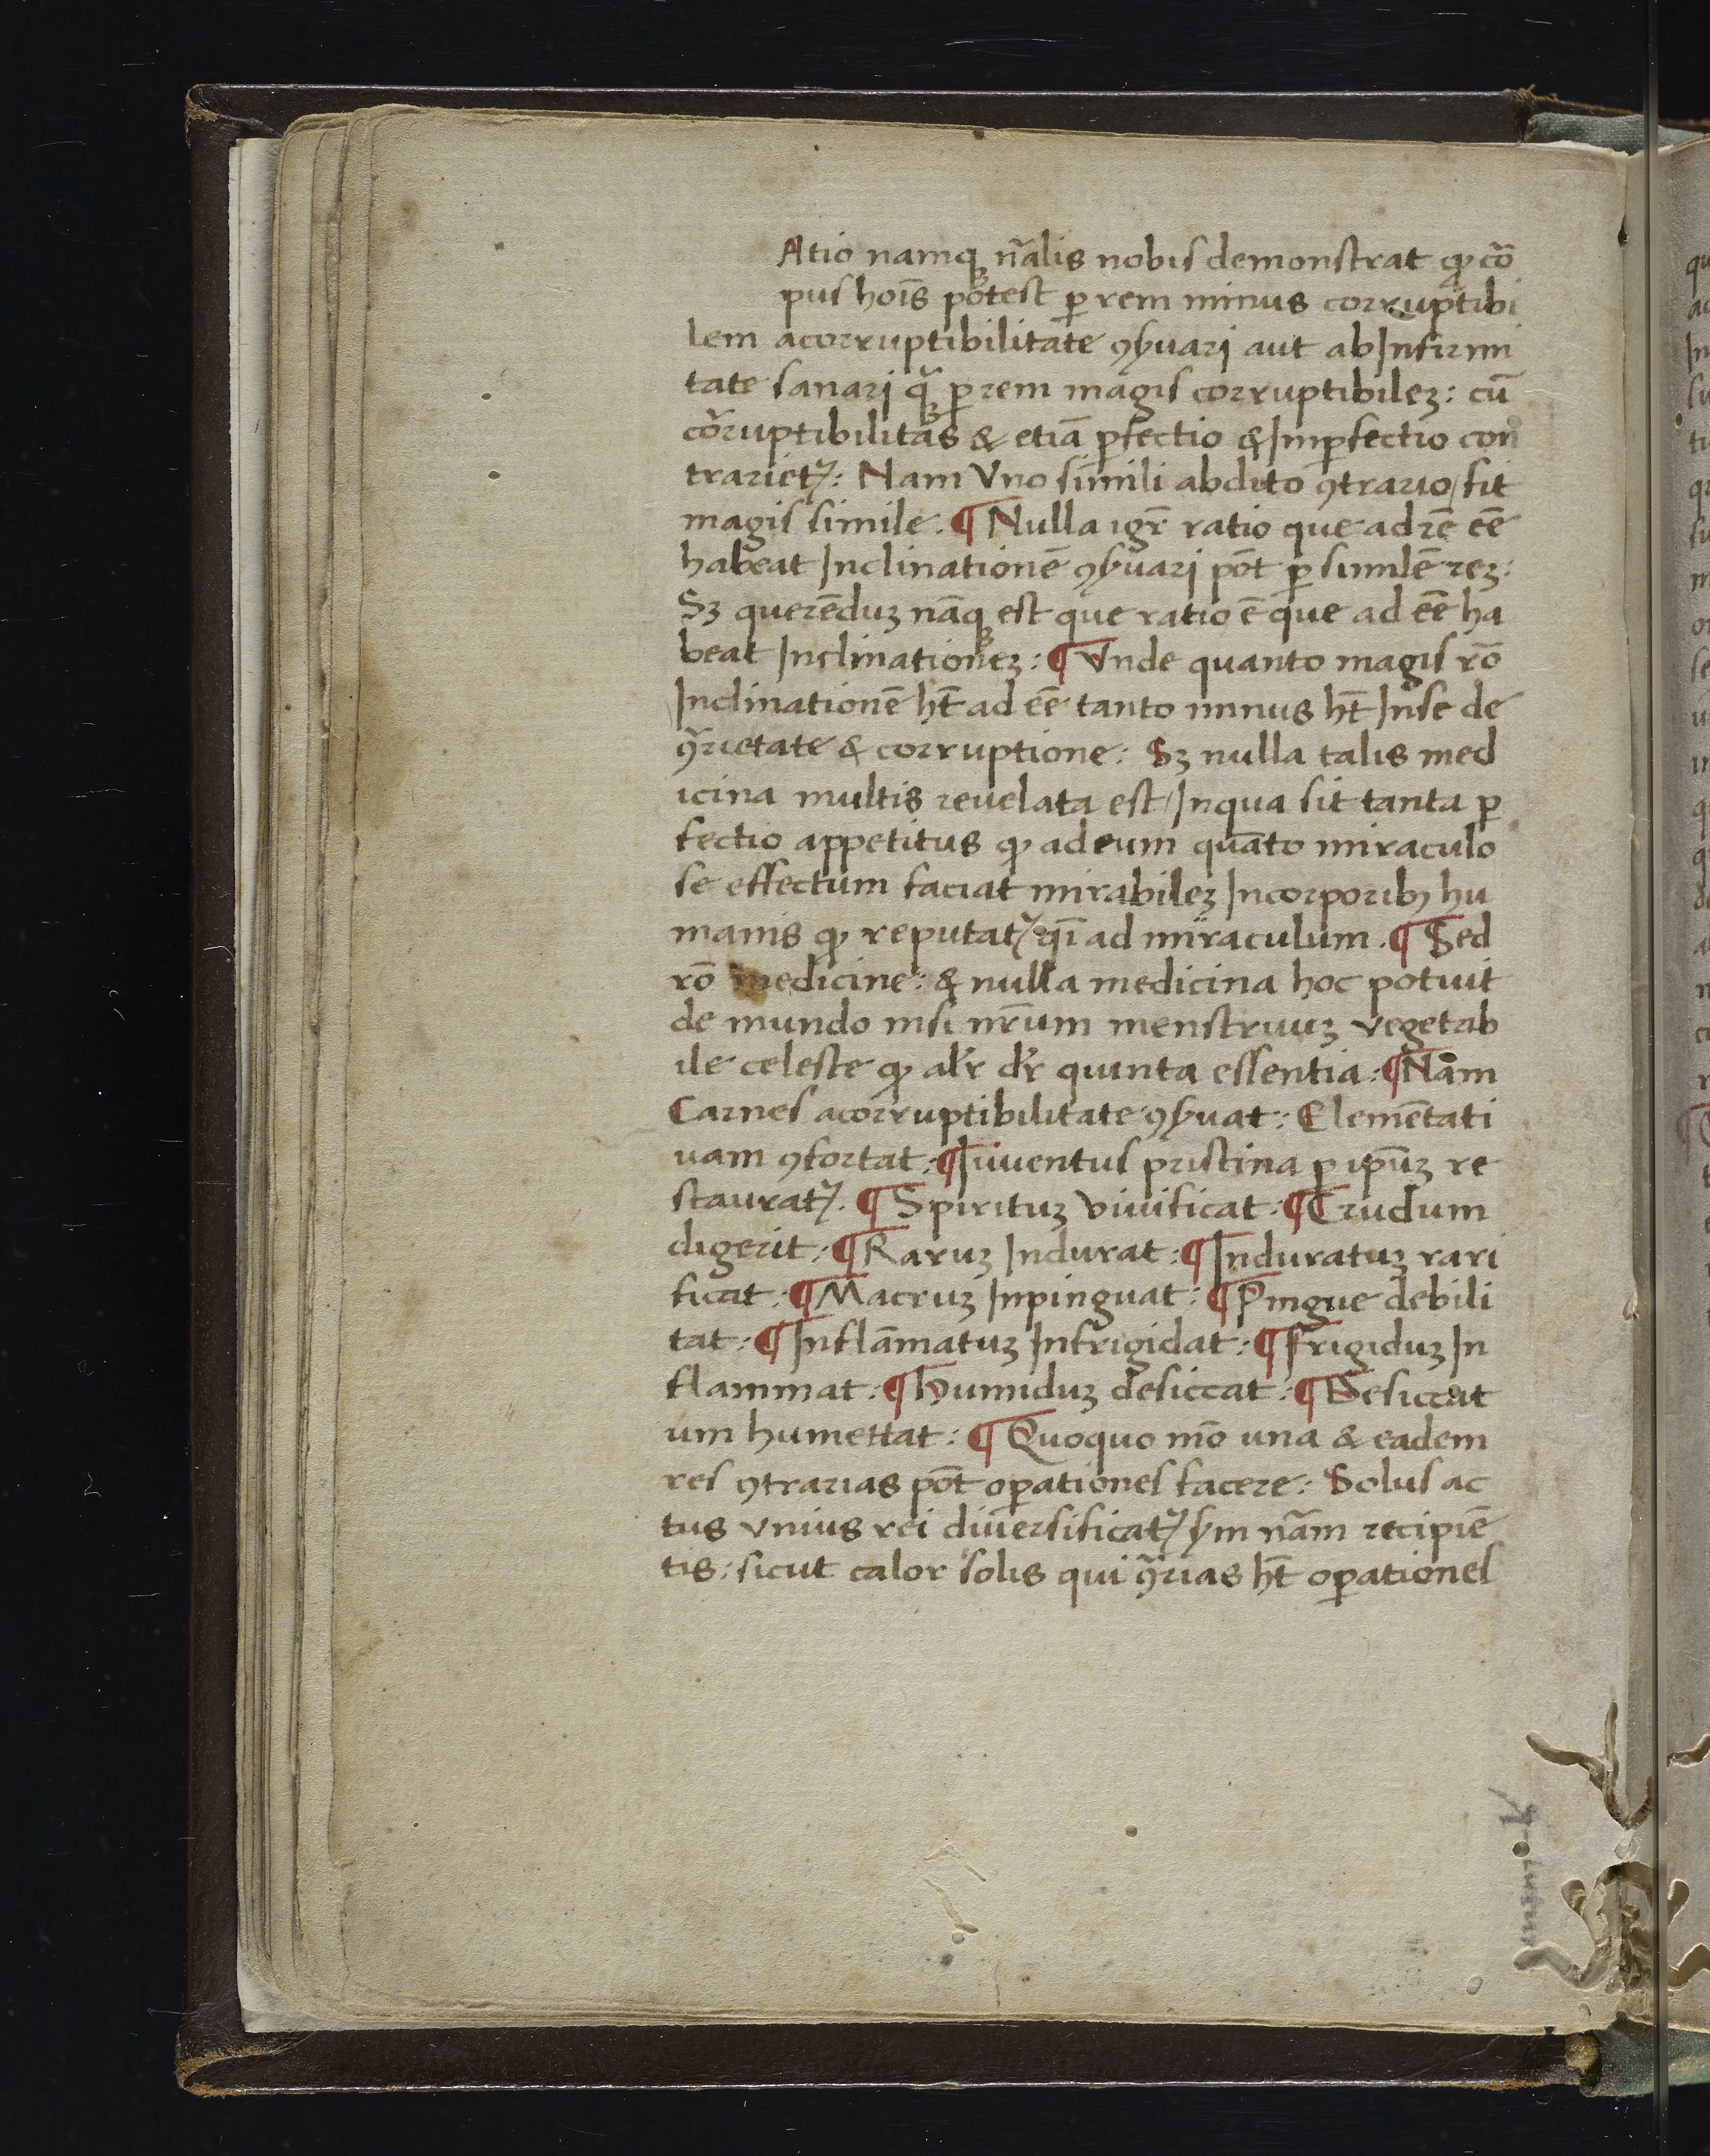 Atio namqꝫ nãlis nobis demonstrat ꝙ cõr
pus hoĩs potest ꝑ rem minus corruptibi
lem acorruptibilitate ꝯẜuari aut abInfirmi
tate sanari qꝫ̃ ꝑ rem magis corruptibileꝫ: cũ
cõruptibilitas & etiã ꝑfectio & Imꝑfectio con
trarietᷣ: Nam Vno simili abdito ꝯtrario/ fit
magis simile: ¶ Nulla igr̃ ratio que ad rẽ eẽ
habeat Inclinationẽ ꝯẜuari põt ꝑ similẽ reꝫ:
Sꝫ querẽduꝫ nãqꝫ est que ratio ẽ que ad eẽ ha
beat Inclinationeꝫ: ¶ Vnde quanto magis rõ
Inclinationẽ ht̃ ad eẽ tanto minus ht̃ Inse de
ꝯ̃rietate & corruptione: Sꝫ nulla talis med
icina multis reuelata est/ Inqua sit tanta ꝑ
fectio appetitus ꝙ ad eum quãto miraculo
se effectum faciat mirabileꝫ Incorporibꝫ hu
manis ꝙ reputatᷣ qĩ ad miraculum. ¶ Sed
rõ medicine: & nulla medicina hoc potuit
de mundo nisi nr̃um menstruuꝫ vegetab
ile celeste ꝙ alr̃ dr̃ quinta essentia: ¶ Nam
Carnes acorruptibilitate ꝯẜuat: Elemẽtati
uam ꝯfortat: ¶ Iuuentus pristina ꝑ ip̃uꝫ re
stauratᷣ. ¶ Spirituꝫ viuificat: ¶ Crudum
digerit: ¶ Raruꝫ Indurat: ¶ Induratuꝫ rari
ficat: ¶ Macruꝫ Inpinguat: ¶ Pingue debili
tat: ¶ Inflãmatuꝫ Infrigidat: ¶ frigiduꝫ In
flammat: ¶ Humiduꝫ desiccat: ¶ Desiccat
um humettat: ¶ Quoquo mõ una & eadem
res ꝯtrarias põt oꝑationes facere: Solus ac
tus vnius rei diuersificatᷣ ẜm nãm recipiẽ
tis: sicut calor solis qui ꝯ̃rias ht̃ oꝑationes